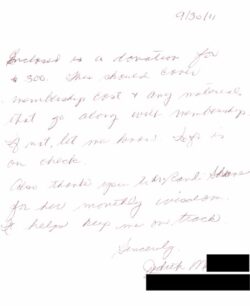 9/30/11
Enclosed is a donation for
$300. This should cover
membership cost & any material
that go along with membership.
If not, let me know! Info is
on check.
Also thank you &
for her monthly wisdom.
It helps keep me on track.
Sincerely,
Judith